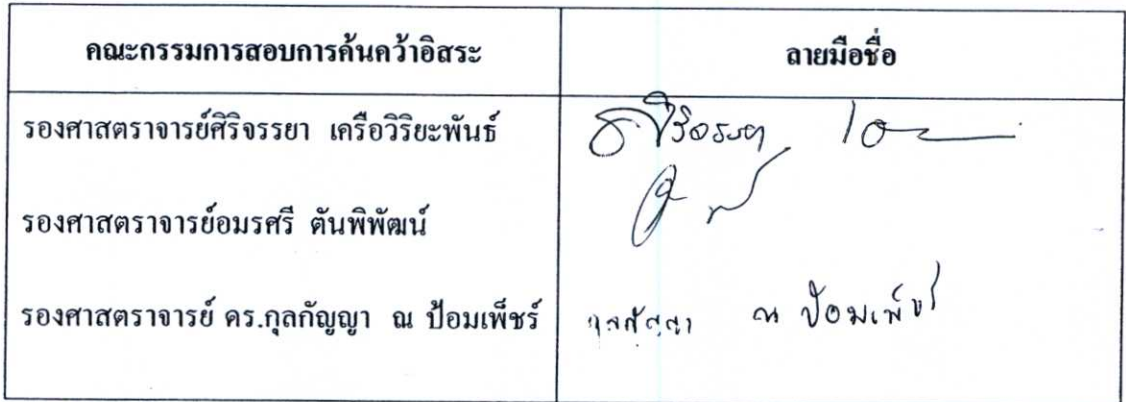 คณะกรรมการสอบการค้นคว้าอิสระ ลายมือชื่อ
รองศาสตราจารย์ศิริจรรยา เครือวิริยะพันธ์
รองศาสตราจารย์อมรศรี ตันพิพัฒน์
รองศาสตราจารย์ ดร.กุลกัญญา ณ ป้อมเพ็ชร์ กุลกัญญา ณ ป้อมเพ็ชร์